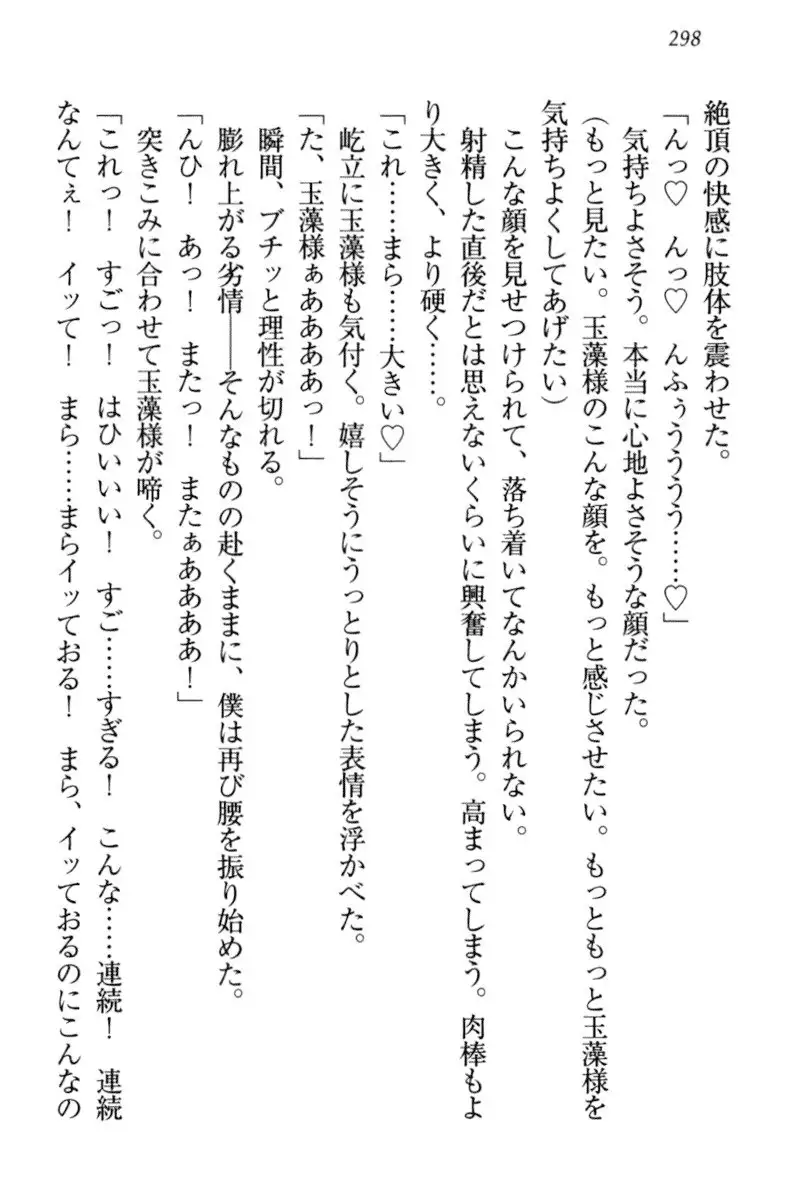 298
絶頂の快感に肢体を震わせた。
「んっ♡　んっ♡　んふぅぅううう……♡」
　気持ちよさそう。本当に心地よさそうな顔だった。
（もっと見たい。玉藻様のこんな顔を。もっと感じさせたい。もっともっと玉藻様を
気持ちよくしてあげたい）
　こんな顔を見せつけられて、落ち着いてなんかいられない。
　射精した直後だとは思えないくらいに興奮してしまう。高まってしまう。肉棒もよ
り大きく、より硬く……。
「これ……まら……大きい♡」
　屹立に玉藻様も気付く。嬉しそうにうっとりとした表情を浮かべた。
「た、玉藻様ぁああああっ！」
　瞬間、ブチッと理性が切れる。
　膨れ上がる劣情――そんなものの赴くままに、僕は再び腰を振り始めた。
「んひ！　あっ！　またっ！　またぁああああ！」
　突きこみに合わせて玉藻様が啼く。
「これっ！　すごっ！　はひいいい！　すご……すぎる！　こんな……連続！　連続
なんてぇ！　イッて！　まら……まらイッておる！　まら、イッておるのにこんなの